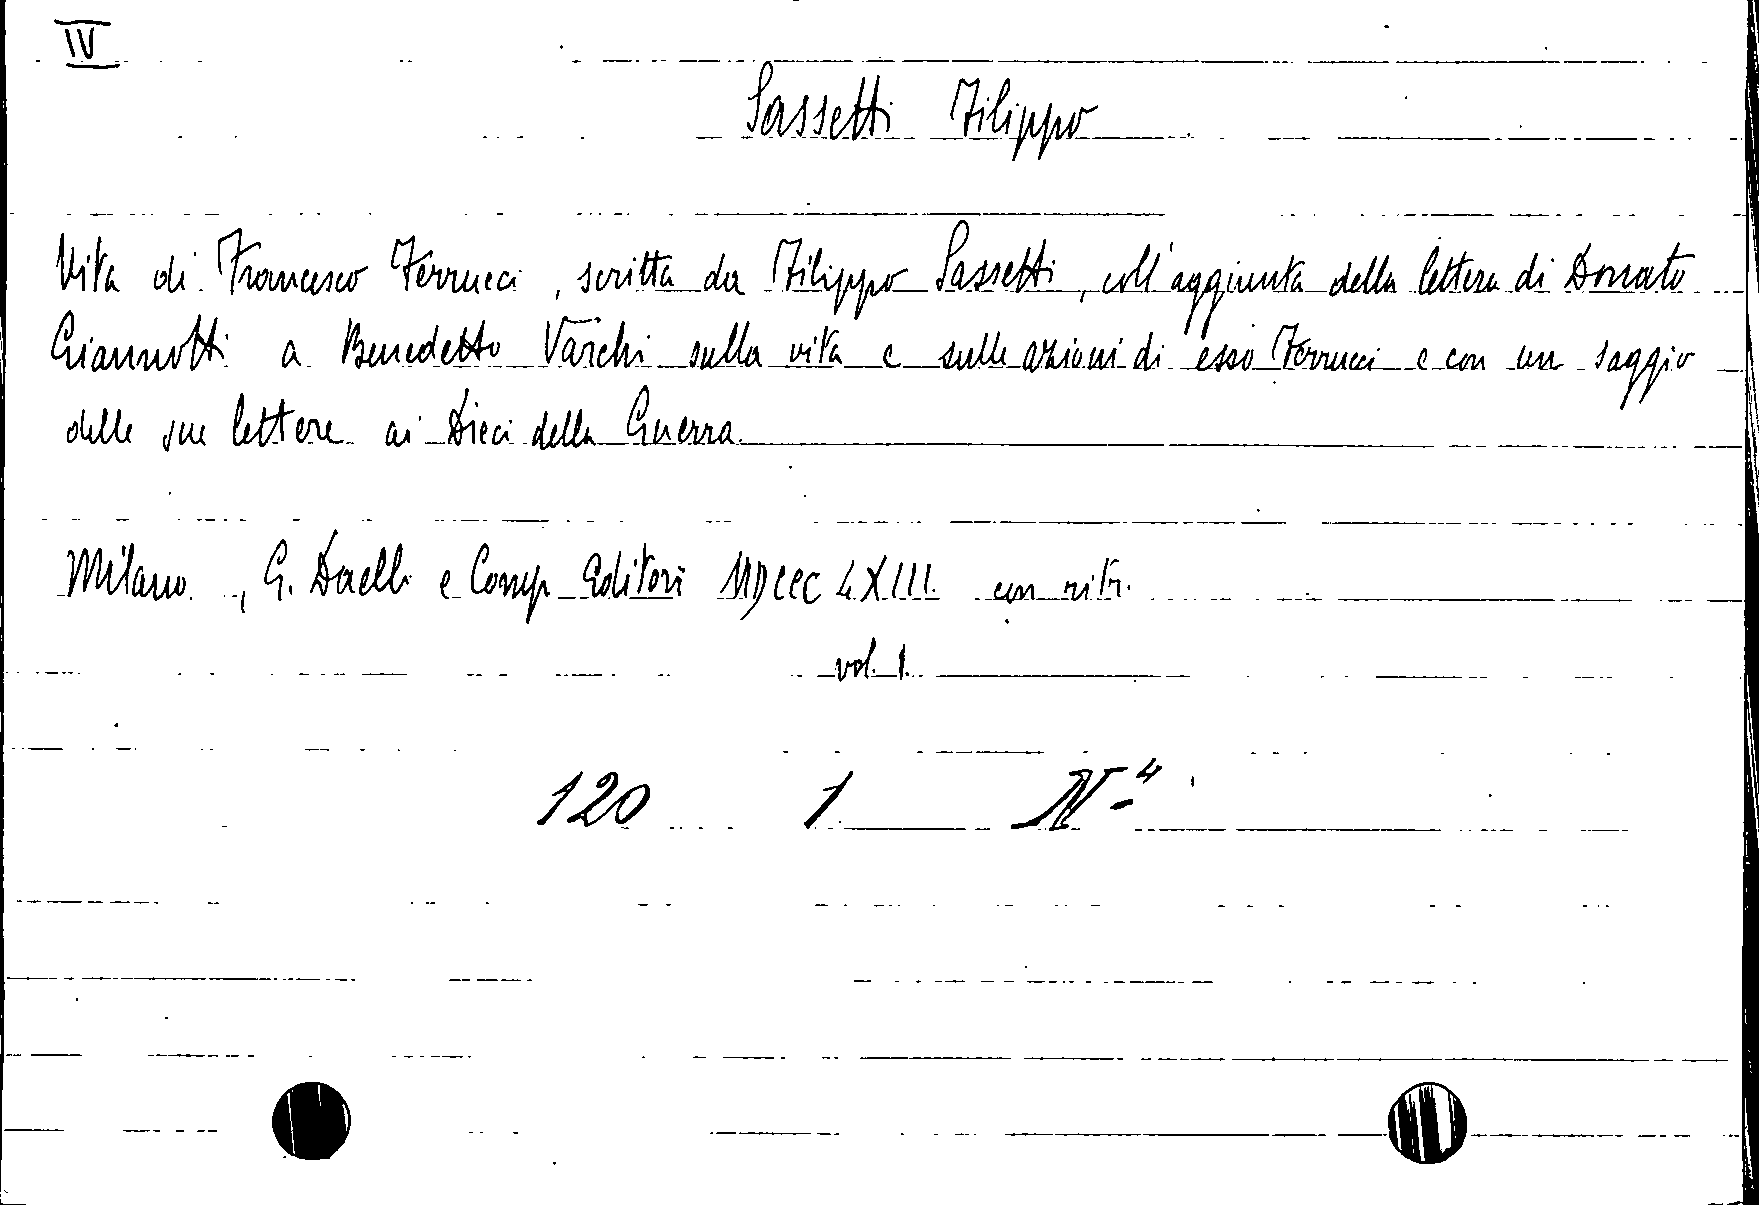 IV
Sassetti Filippo
Vita di Francesco Ferrucci, scritta da Filippo Sassetti, coll'aggiunta della lettera di Donato
Giannotti a Benedetto Varchi sulla vita e sulle azioni di esso Ferrucci e con un saggio
delle sue lettere ai Dieci della Guerra.
Milano, G. Daelli e Comp. Editori MDCCCLXIII. con ritr.
vol. 1.
120 1 N-4